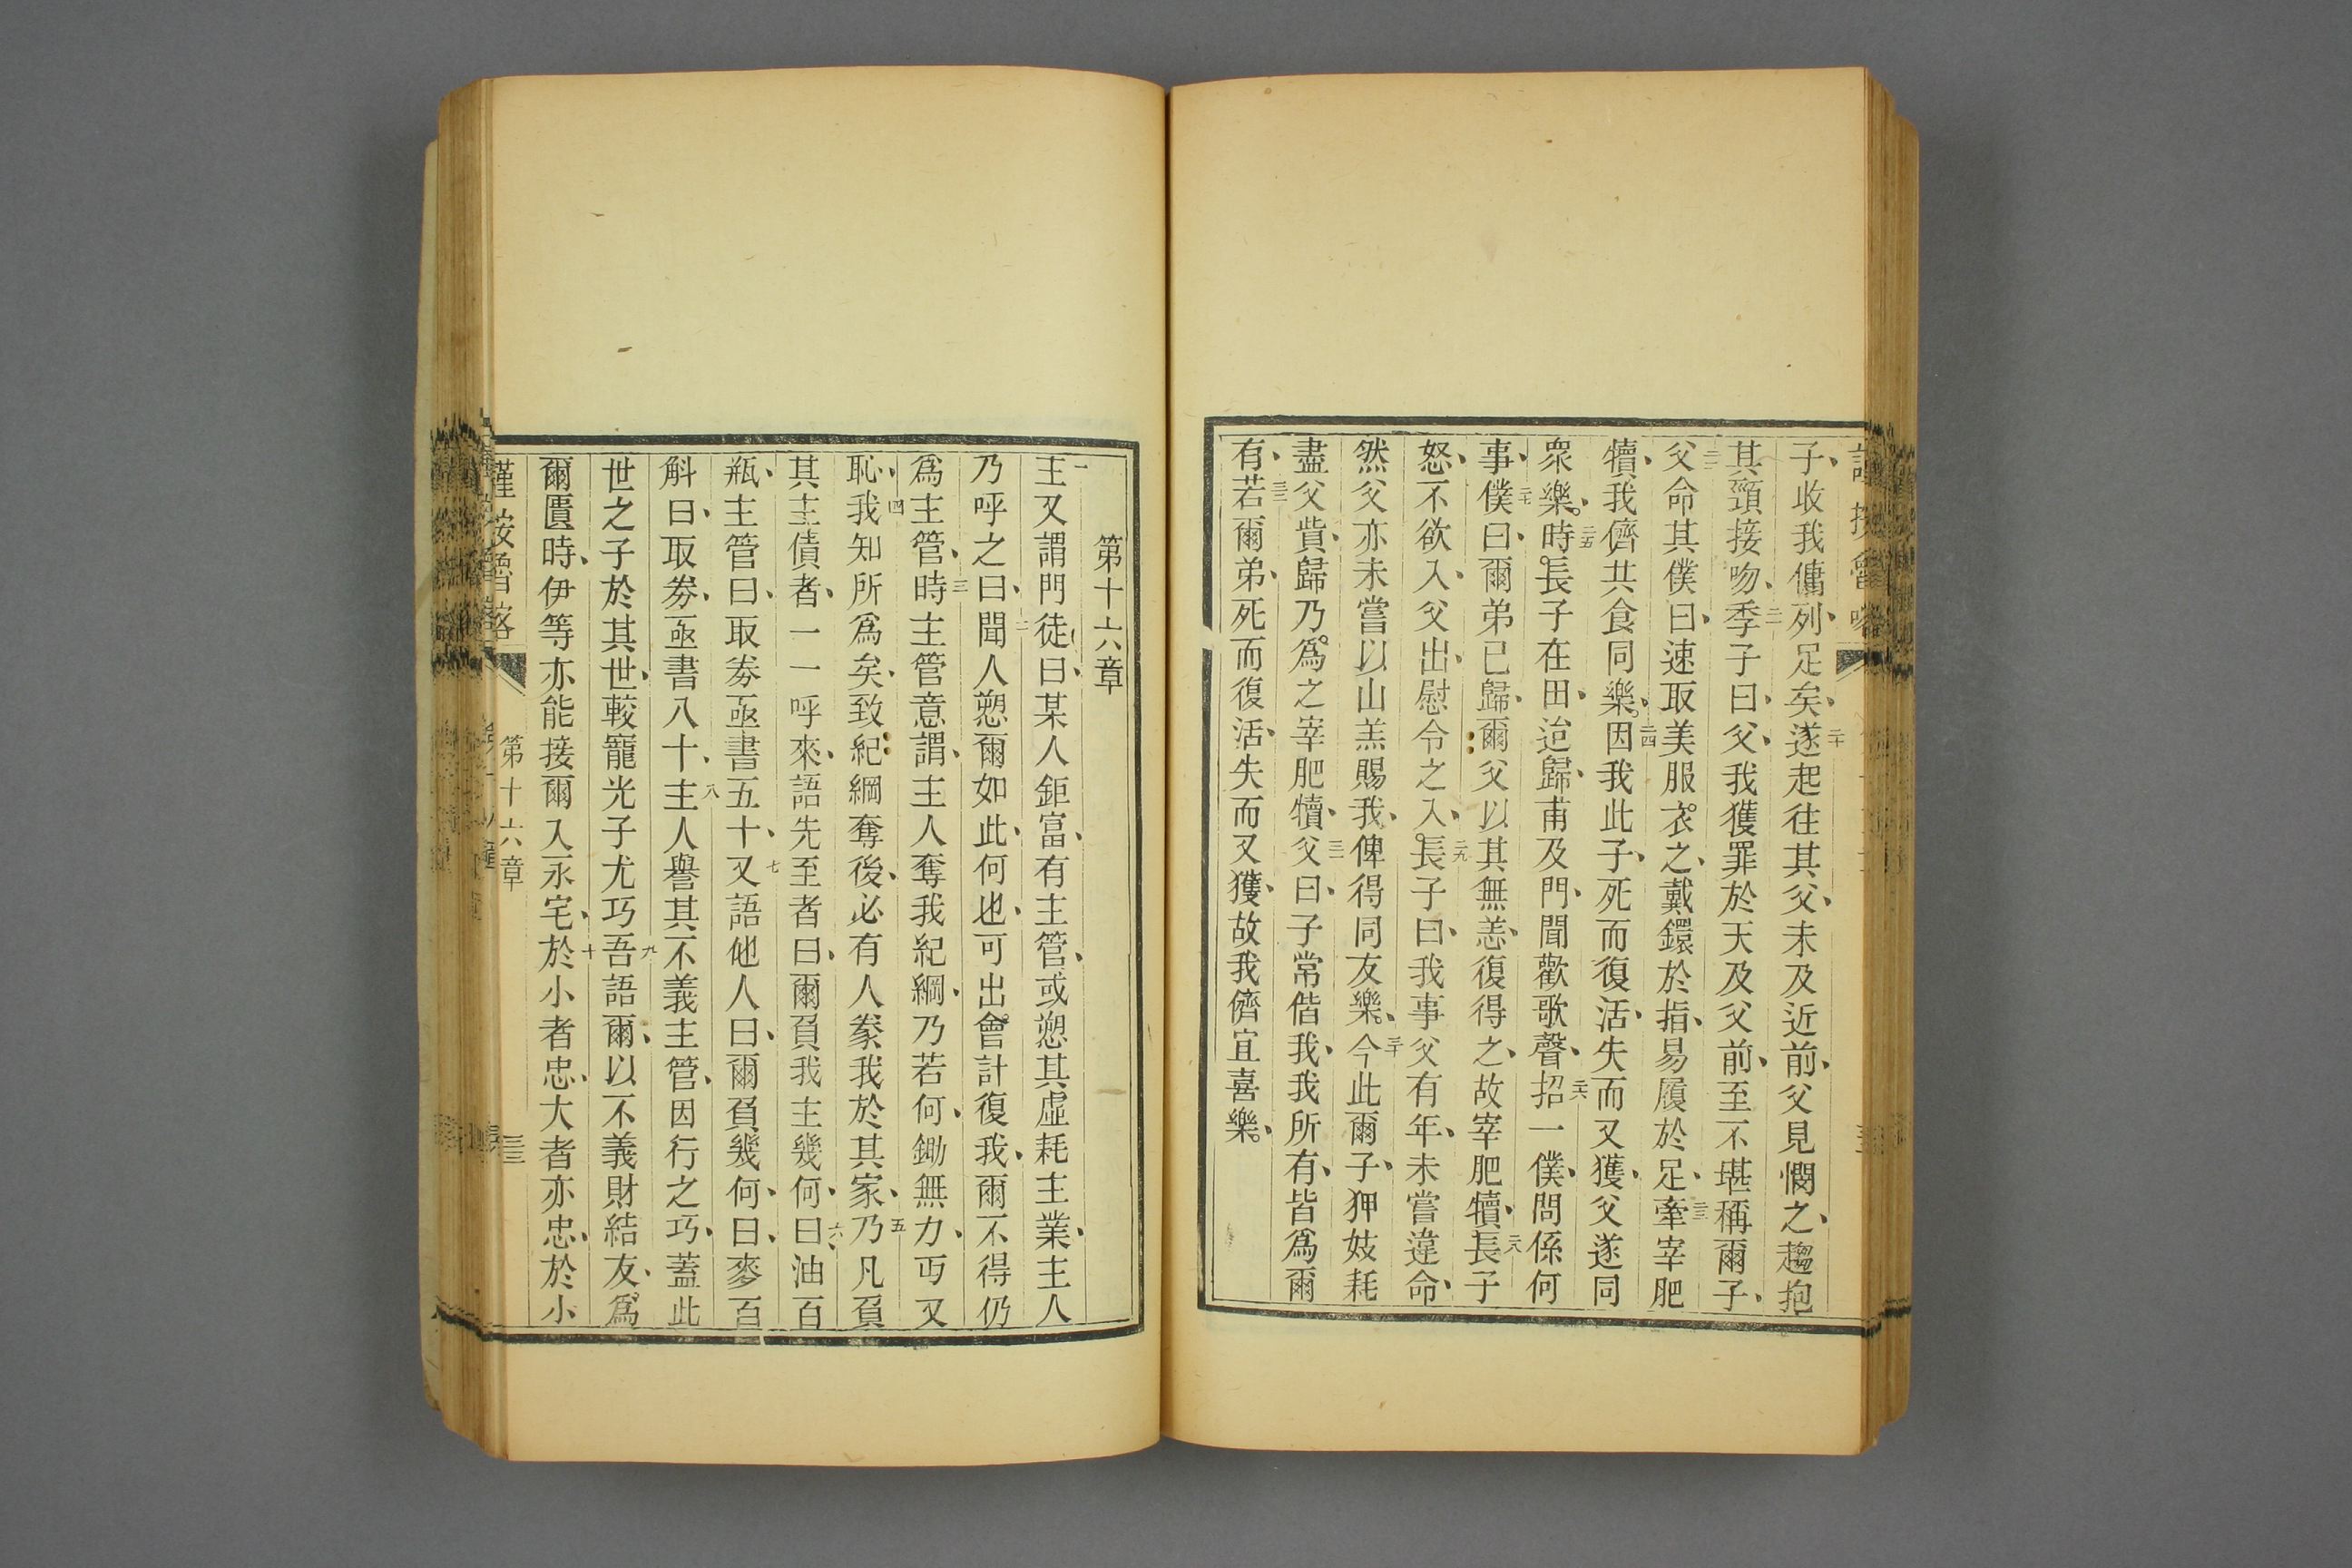 子、收我傭列、足矣、二十遂起往其父、未及近前、父見憫之、趨抱
其頸接吻、二一季子曰、父、我獲罪於天及父前、至不堪稱爾子、
二二父命其僕曰、速取美服衣之、戴鐶於指、易履於足、二三牽宰肥
犢、我儕共食同樂、二四因我此子、死而復活、失而又獲、父遂同
衆樂、二五時長子在田、迨歸、甫及門、聞歡歌聲、二六招一僕、問係何
事、二七僕曰、爾弟已歸、爾父以其無恙、復得之、故宰肥犢、二八長子
怒、不欲入、父出、慰令之入、二九長子曰、我事父有年、未嘗違命、
然父亦未嘗以山羔賜我、俾得同友樂、三十今此爾子、狎妓耗
盡父貲、歸乃為之宰肥犢、三一父曰、子常偕我、我所有、皆爲爾
有、三二若爾弟、死而復活、失而又獲、故我儕宜喜樂。
第十六章
一主又謂門徒曰、某人鉅富、有主管、或愬其虛耗主業、主人
乃呼之曰、二聞人愬爾如此、何也、可出會計復我、爾不得仍
爲主管、三時主管意謂、主人奪我紀綱、乃若何、鋤無力、丐又
恥、四我知所爲矣、致紀綱奪後、必有人豢我於其家、五乃凡負
其主債者、一一呼來、語先至者曰、爾負我主幾何、六曰、油百
瓶、主管曰、取券亟書五十、七又語他人曰、爾負幾何、曰、麥百
斛、曰、取券、亟書八十、八主人譽其不義主管、因行之巧、蓋此
世之子於其世、較寵光子尤巧、九吾語爾、以不義財結友、爲
爾匱時、伊等亦能接爾入永宅、十於小者忠、大者亦忠、於小
第十六章
三三